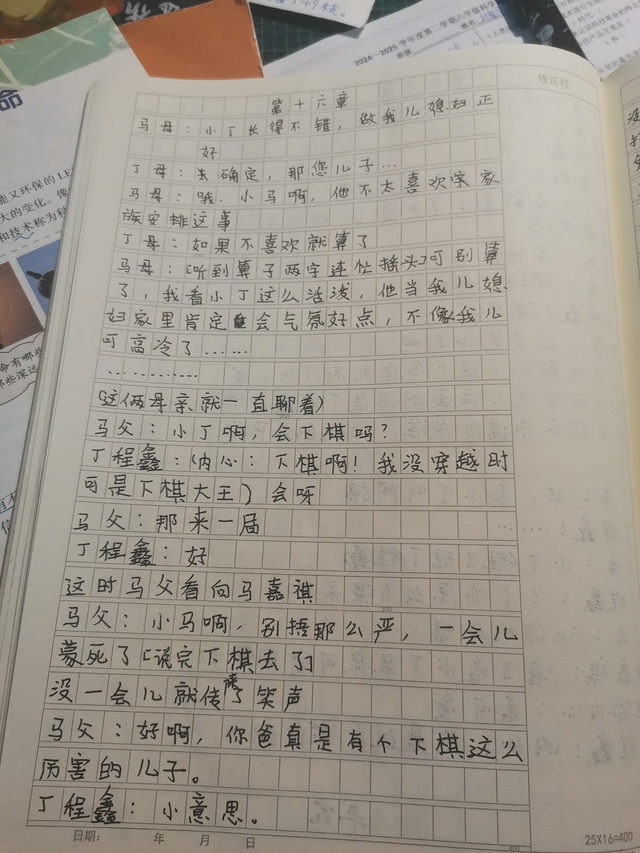 2024—2025学年度第二学期六年级科学
命
能又环保的LE
大的变化。像
和技术称为科
命有哪些
那些深远
修正栏
第十六章
马母:小丁长得不错,做我儿媳妇正
好
丁母:去确定,那您儿子…
马母:哦,小马啊,他不太喜欢家家
族安排这事
丁母:如果不喜欢就算了
马母:[听到算子两字连忙摇头]可别算
了,我看小丁这么活泼,他当我儿媳
妇家里肯定会气氛好点,不像我儿
可高冷了……
…………
(这俩母亲就一直聊着)
马父:小丁啊,会下棋吗?
丁程鑫:(内心:下棋啊!我没穿越时
可是下棋大王)会呀
马父:那来一局
丁程鑫:好
这时马父看向马嘉祺
马父:小马啊,别捂那么严,一会儿
蒙死了[说完下棋去了]
没一会儿就传了笑声
马父:好啊,你爸真是有个下棋这么
厉害的儿子。
丁程鑫:小意思。
日期: 年 月 日
25X16=400